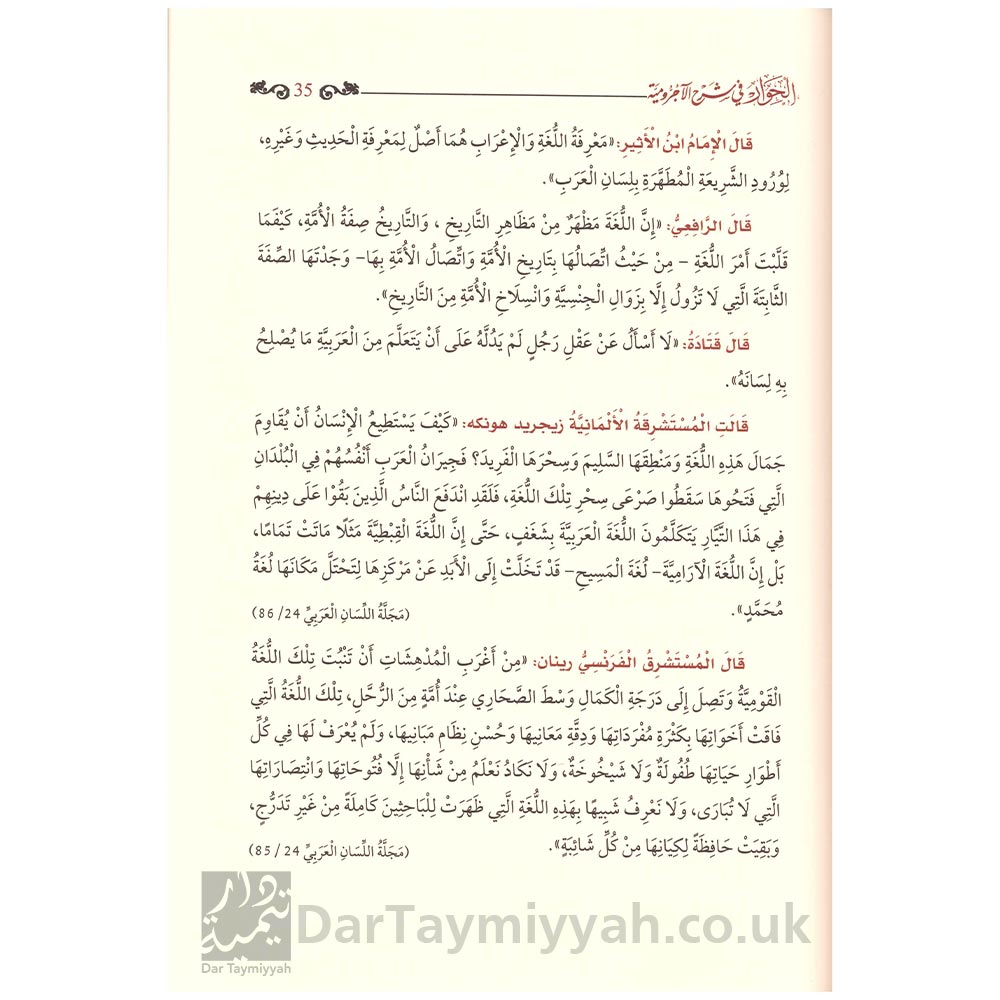 الحوار في شرح الآجرومية 35
قَالَ الْإِمَامُ ابْنُ الْأَثِيرِ: «مَعْرِفَةُ اللُّغَةِ وَالْإِعْرَابِ هُمَا أَصْلٌ لِمَعْرِفَةِ الْحَدِيثِ وَغَيْرِهِ،
لِوُرُودِ الشَّرِيعَةِ الْمُطَهَّرَةِ بِلِسَانِ الْعَرَبِ».
قَالَ الرَّافِعِيُّ: «إِنَّ اللُّغَةَ مَظْهَرٌ مِنْ مَظَاهِرِ التَّارِيخِ ، وَالتَّارِيخُ صِفَةُ الْأُمَّةِ، كَيْفَمَا
قَلَّبْتَ أَمْرَ اللُّغَةِ – مِنْ حَيْثُ اتِّصَالُهَا بِتَارِيخِ الْأُمَّةِ وَاتِّصَالُ الْأُمَّةِ بِهَا– وَجَدْتَهَا الصِّفَةَ
الثَّابِتَةَ الَّتِي لَا تَزُولُ إِلَّا بِزَوَالِ الْجِنْسِيَّةِ وَانْسِلَاخِ الْأُمَّةِ مِنَ التَّارِيخِ».
قَالَ قَتَادَةُ: «لَا أَسْأَلُ عَنْ عَقْلِ رَجُلٍ لَمْ يَدُلَّهُ عَلَى أَنْ يَتَعَلَّمَ مِنَ الْعَرَبِيَّةِ مَا يُصْلِحُ
بِهِ لِسَانَهُ».
قَالَتِ الْمُسْتَشْرِقَةُ الْأَلْمَانِيَّةُ زيجريد هونكه: «كَيْفَ يَسْتَطِيعُ الْإِنْسَانُ أَنْ يُقَاوِمَ
جَمَالَ هَذِهِ اللُّغَةِ وَمَنْطِقَهَا السَّلِيمَ وَسِحْرَهَا الْفَرِيدَ؟ فَجِيرَانُ الْعَرَبِ أَنْفُسُهُمْ فِي الْبُلْدَانِ
الَّتِي فَتَحُوهَا سَقَطُوا صَرْعَى سِحْرِ تِلْكَ اللُّغَةِ، فَلَقَدِ انْدَفَعَ النَّاسُ الَّذِينَ بَقُوْا عَلَى دِينِهِمْ
فِي هَذَا التَّيَّارِ يَتَكَلَّمُونَ اللُّغَةَ الْعَرَبِيَّةَ بِشَغَفٍ، حَتَّى إِنَّ اللُّغَةَ الْقِبْطِيَّةَ مَثَلًا مَاتَتْ تَمَامًا،
بَلْ إِنَّ اللُّغَةَ الْآرَامِيَّةَ– لُغَةَ الْمَسِيحِ– قَدْ تَخَلَّتْ إِلَى الْأَبَدِ عَنْ مَرْكَزِهَا لِتَحْتَلَّ مَكَانَهَا لُغَةُ
مُحَمَّدٍ». (مَجَلَّةُ اللِّسَانِ الْعَرَبِيِّ 24/ 86)
قَالَ الْمُسْتَشْرِقُ الْفَرَنْسِيُّ رينان: «مِنْ أَغْرَبِ الْمُدْهِشَاتِ أَنْ تَنْبُتَ تِلْكَ اللُّغَةُ
الْقَوْمِيَّةُ وَتَصِلَ إِلَى دَرَجَةِ الْكَمَالِ وَسْطَ الصَّحَارِي عِنْدَ أُمَّةٍ مِنَ الرُّحَّلِ، تِلْكَ اللُّغَةُ الَّتِي
فَاقَتْ أَخَوَاتِهَا بِكَثْرَةِ مُفْرَدَاتِهَا وَدِقَّةِ مَعَانِيهَا وَحُسْنِ نِظَامِ مَبَانِيهَا، وَلَمْ يُعْرَفْ لَهَا فِي كُلِّ
أَطْوَارِ حَيَاتِهَا طُفُولَةٌ وَلَا شَيْخُوخَةٌ، وَلَا نَكَادُ نَعْلَمُ مِنْ شَأْنِهَا إِلَّا فُتُوحَاتِهَا وَانْتِصَارَاتِهَا
الَّتِي لَا تُبَارَى، وَلَا نَعْرِفُ شَبِيهًا بِهَذِهِ اللُّغَةِ الَّتِي ظَهَرَتْ لِلْبَاحِثِينَ كَامِلَةً مِنْ غَيْرِ تَدَرُّجٍ،
وَبَقِيَتْ حَافِظَةً لِكِيَانِهَا مِنْ كُلِّ شَائِبَةٍ». (مَجَلَّةُ اللِّسَانِ الْعَرَبِيِّ 24/ 85)
دار تيمية
Dar Taymiyyah
DarTaymiyyah.co.uk